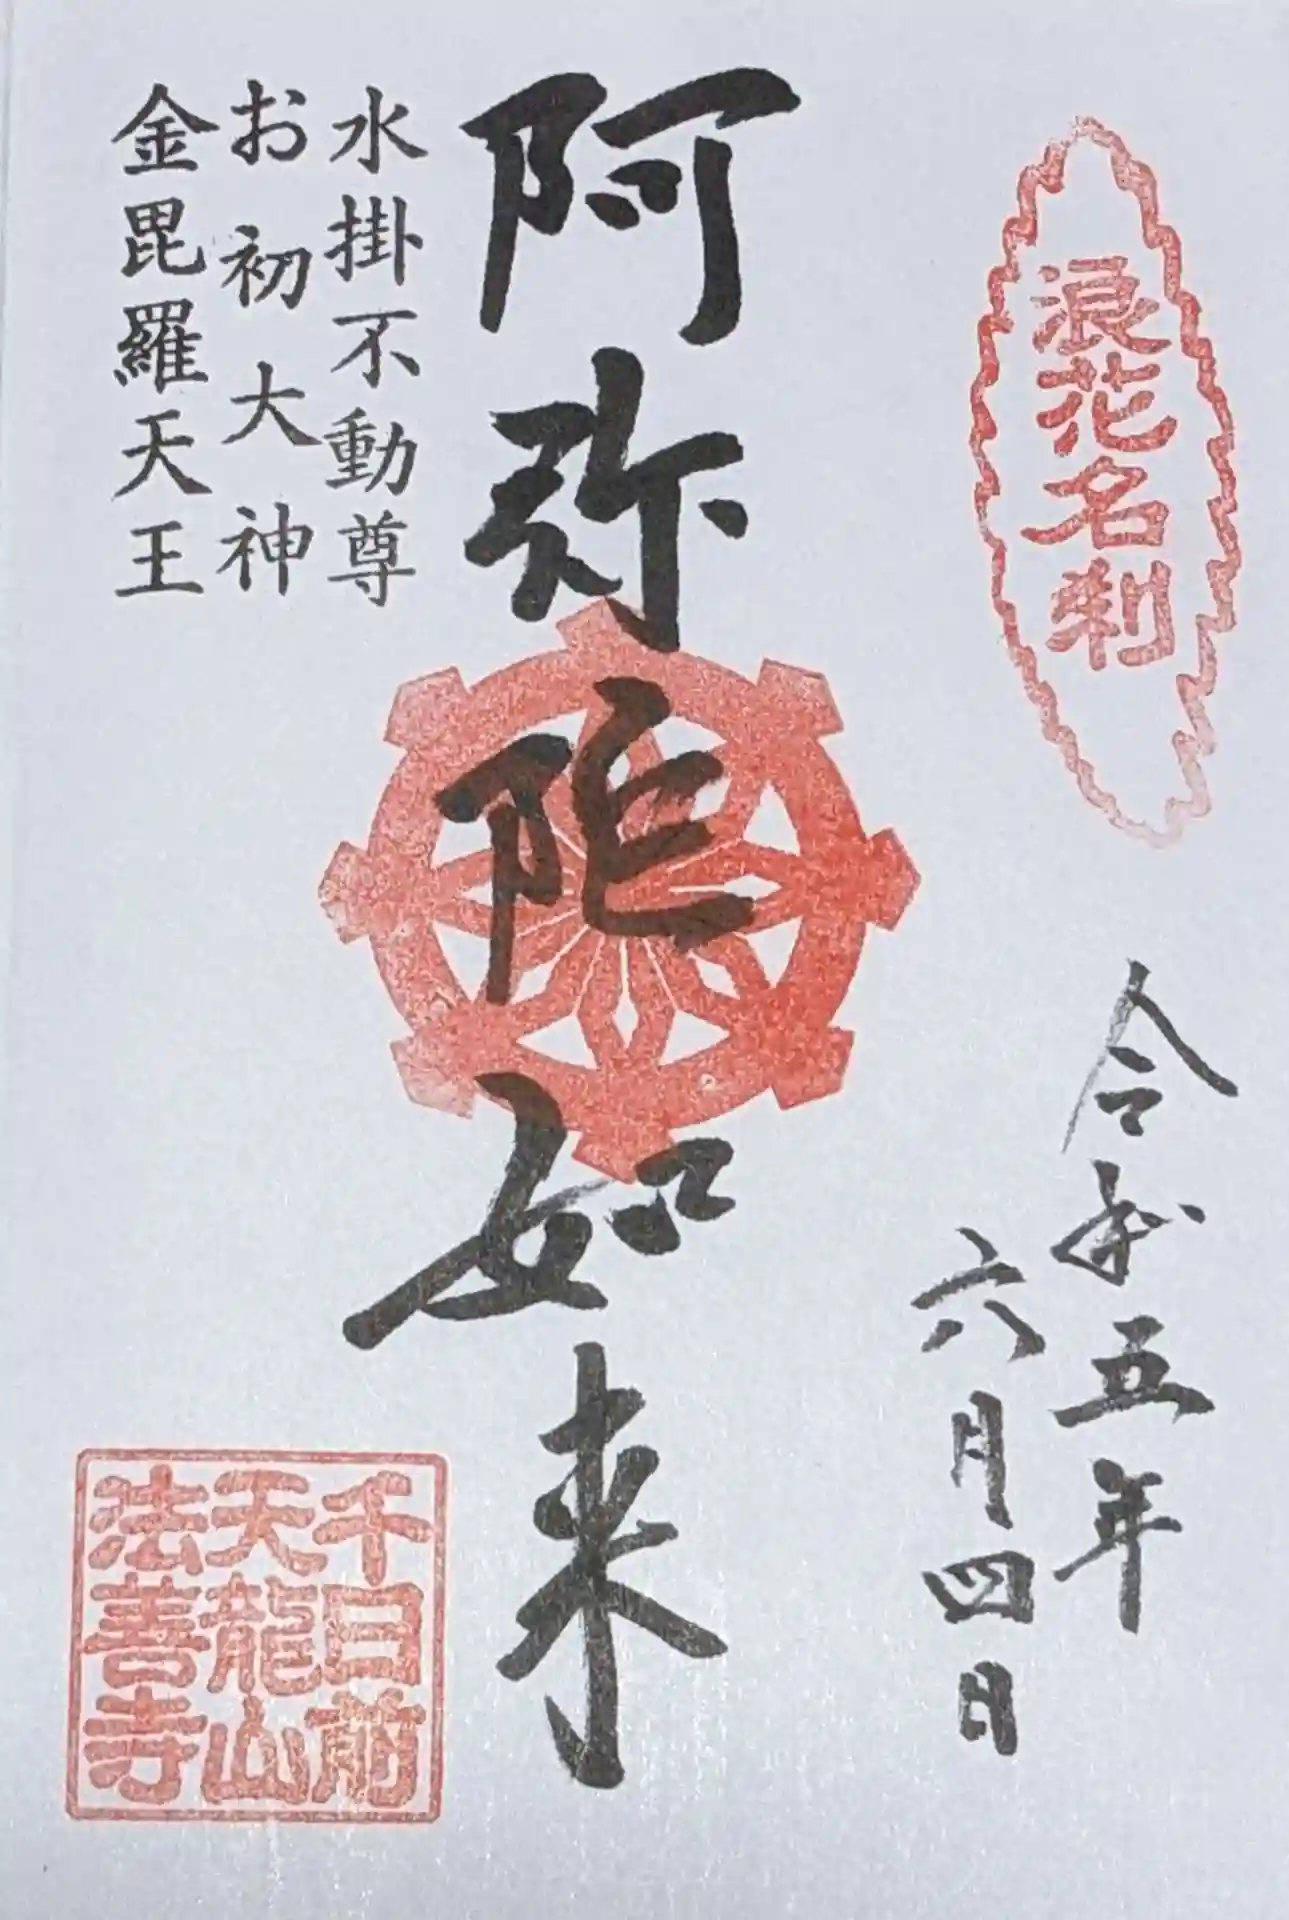 浪花名刹
令和五年
六月四日
阿弥陀如来
水掛不動尊
お初大神
金毘羅天王
千日前
天龍山
法善寺